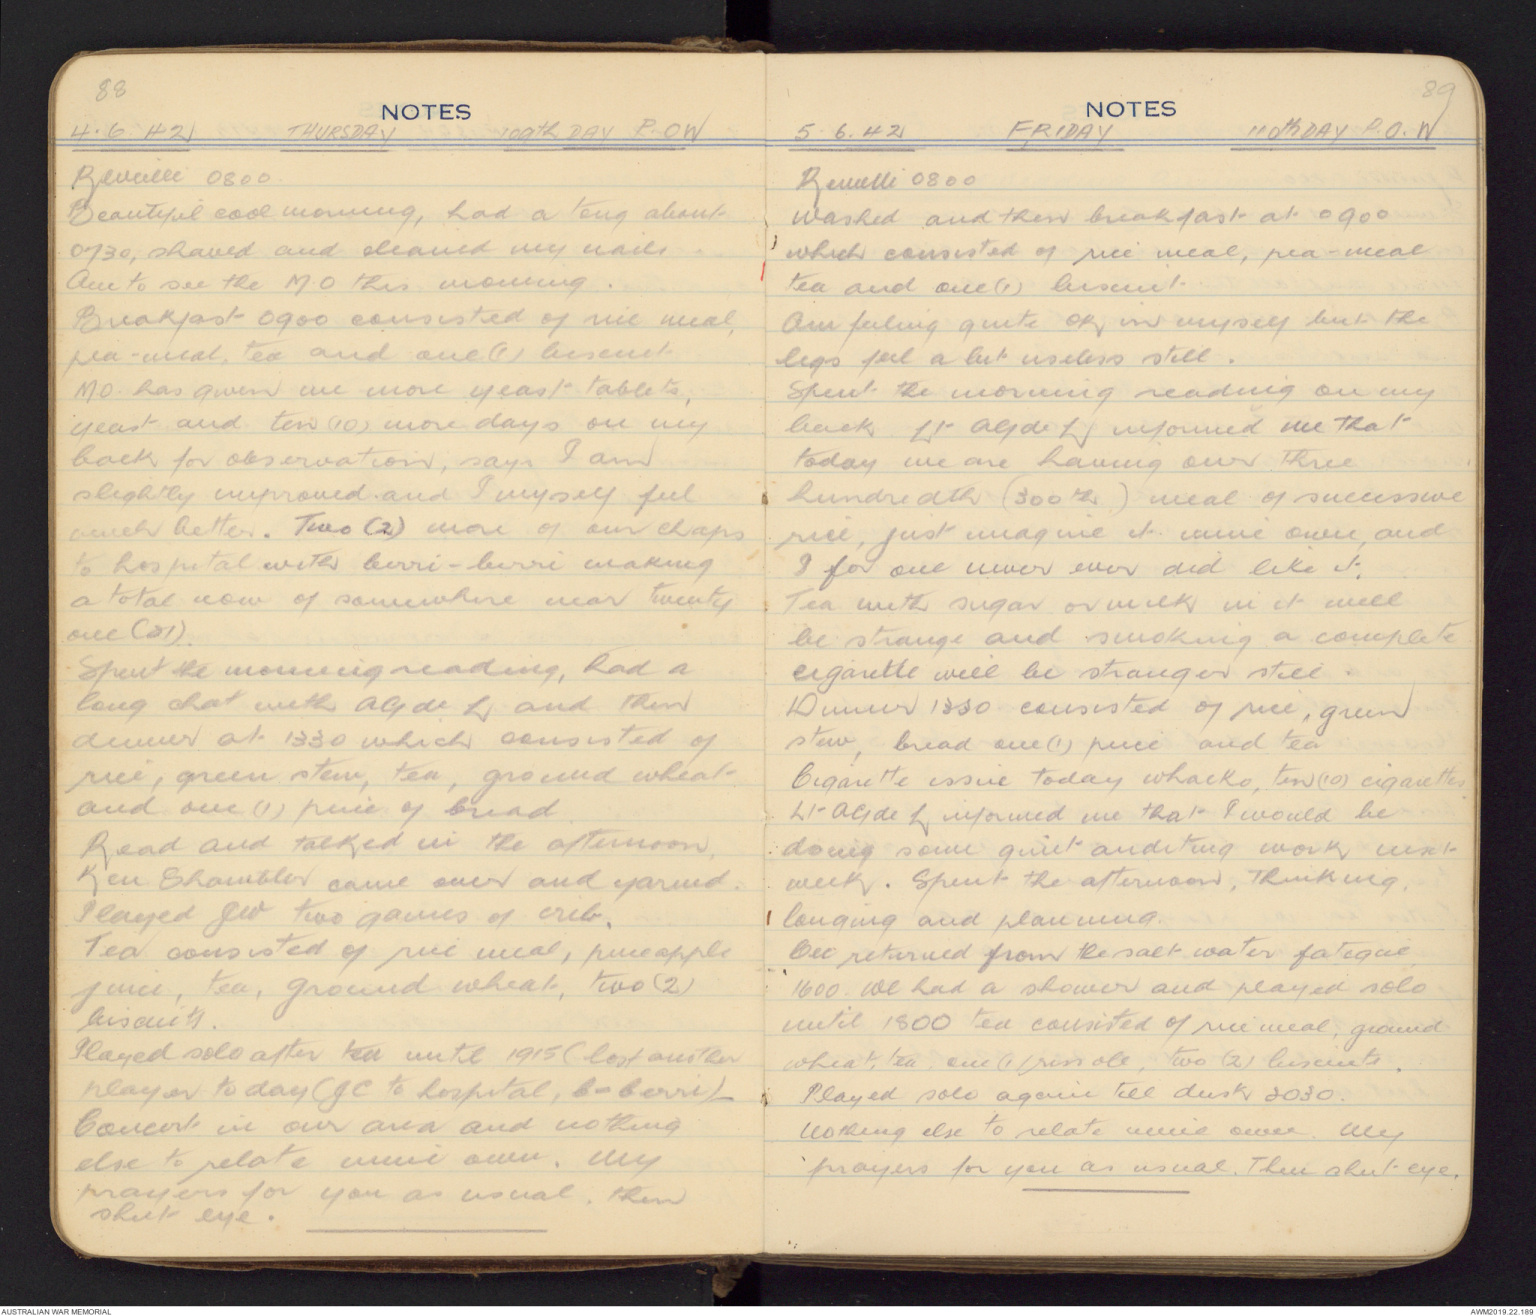 88
NOTES
4.6.42 THURSDAY 109th DAY P.O.W
Reveille 0800
Beautiful cool morning, had a tong about
0730, shaved and cleaned my nails.
Am to see the M.O this morning.
Breakfast 0900 consisted of rice meal,
pea-meal, tea and one (1) biscuit
MO. has given me more yeast tablets,
yeast and ten (10) more days on my
back for observation, says I am
slightly improved and I myself feel
much better. Two (2) more of our chaps
to hospital with berri-berri making
a total now of somewhere near twenty
one (21).
Spent the morning reading, had a
long chat with and then
dinner at 1330 which consisted of
rice, green stew, tea, ground wheat
and one (1) piece of bread
Read and talked in the afternoon,
Ken came over and yarned.
Played JW two games of crib.
Tea consisted of rice meal, pineapple
juice, tea, ground wheat, two (2)
biscuits.
Played solo after tea until 1915 (lost another
player today (JC to hospital, b-berri)
Concert in our area and nothing
else to relate mine own. My
prayers for you as usual. Then
shut eye.
89
NOTES
5.6.42 FRIDAY 110th DAY P.O.W
Reveille 0800
Washed and then breakfast at 0900
which consisted of rice meal, pea-meal
tea and one (1) biscuit.
Am feeling quite ok in myself but the
legs feel a bit useless still.
Spent the morning reading on my
back Lt informed me that
today we are having our three
hundredth (300th) meal of successive
rice, just imagine it mine own, and
I for one never ever did like it.
Tea with sugar or milk in it will
be strange and smoking a complete
cigarette will be stranger still.
Dinner 1330 consisted of rice, green
stew, bread one (1) piece and tea
Cigarette issue today whacko, ten (10) cigarettes
Lt informed me that I would be
doing some quiet auditing work next
week. Spent the afternoon, thinking,
longing and planning.
returned from the salt water fatigue
1600. We had a shower and played solo
until 1800 tea consisted of rice meal, ground
wheat, tea, one (1) rissole, two (2) biscuits.
Played solo again till dusk 2030.
Nothing else to relate mine own. My
prayers for you as usual. Then shut eye.
AUSTRALIAN WAR MEMORIAL
AWM2019.22.189